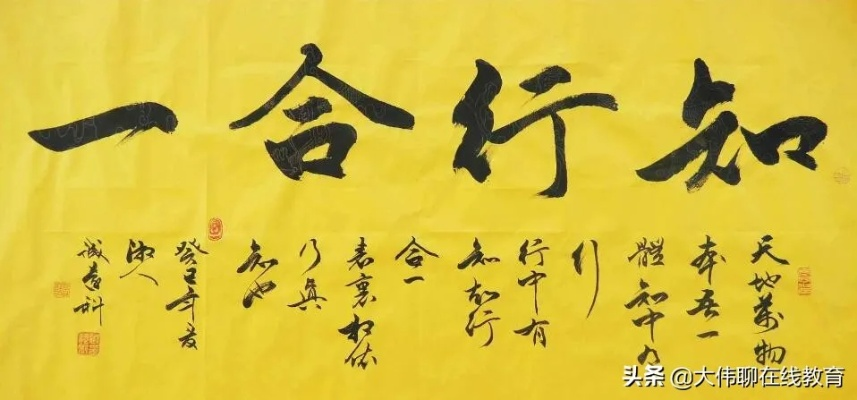 知行合一
天地萬物
本吾一
體知中有
行
行中有
知知行
合一
表裏相依
乃真
知也
癸巳年夏
头条 @大伟聊在线教育